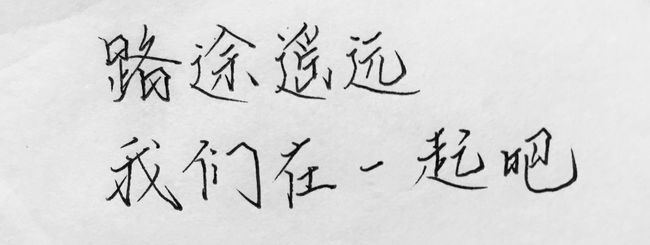 路途遥远
我们在一起吧